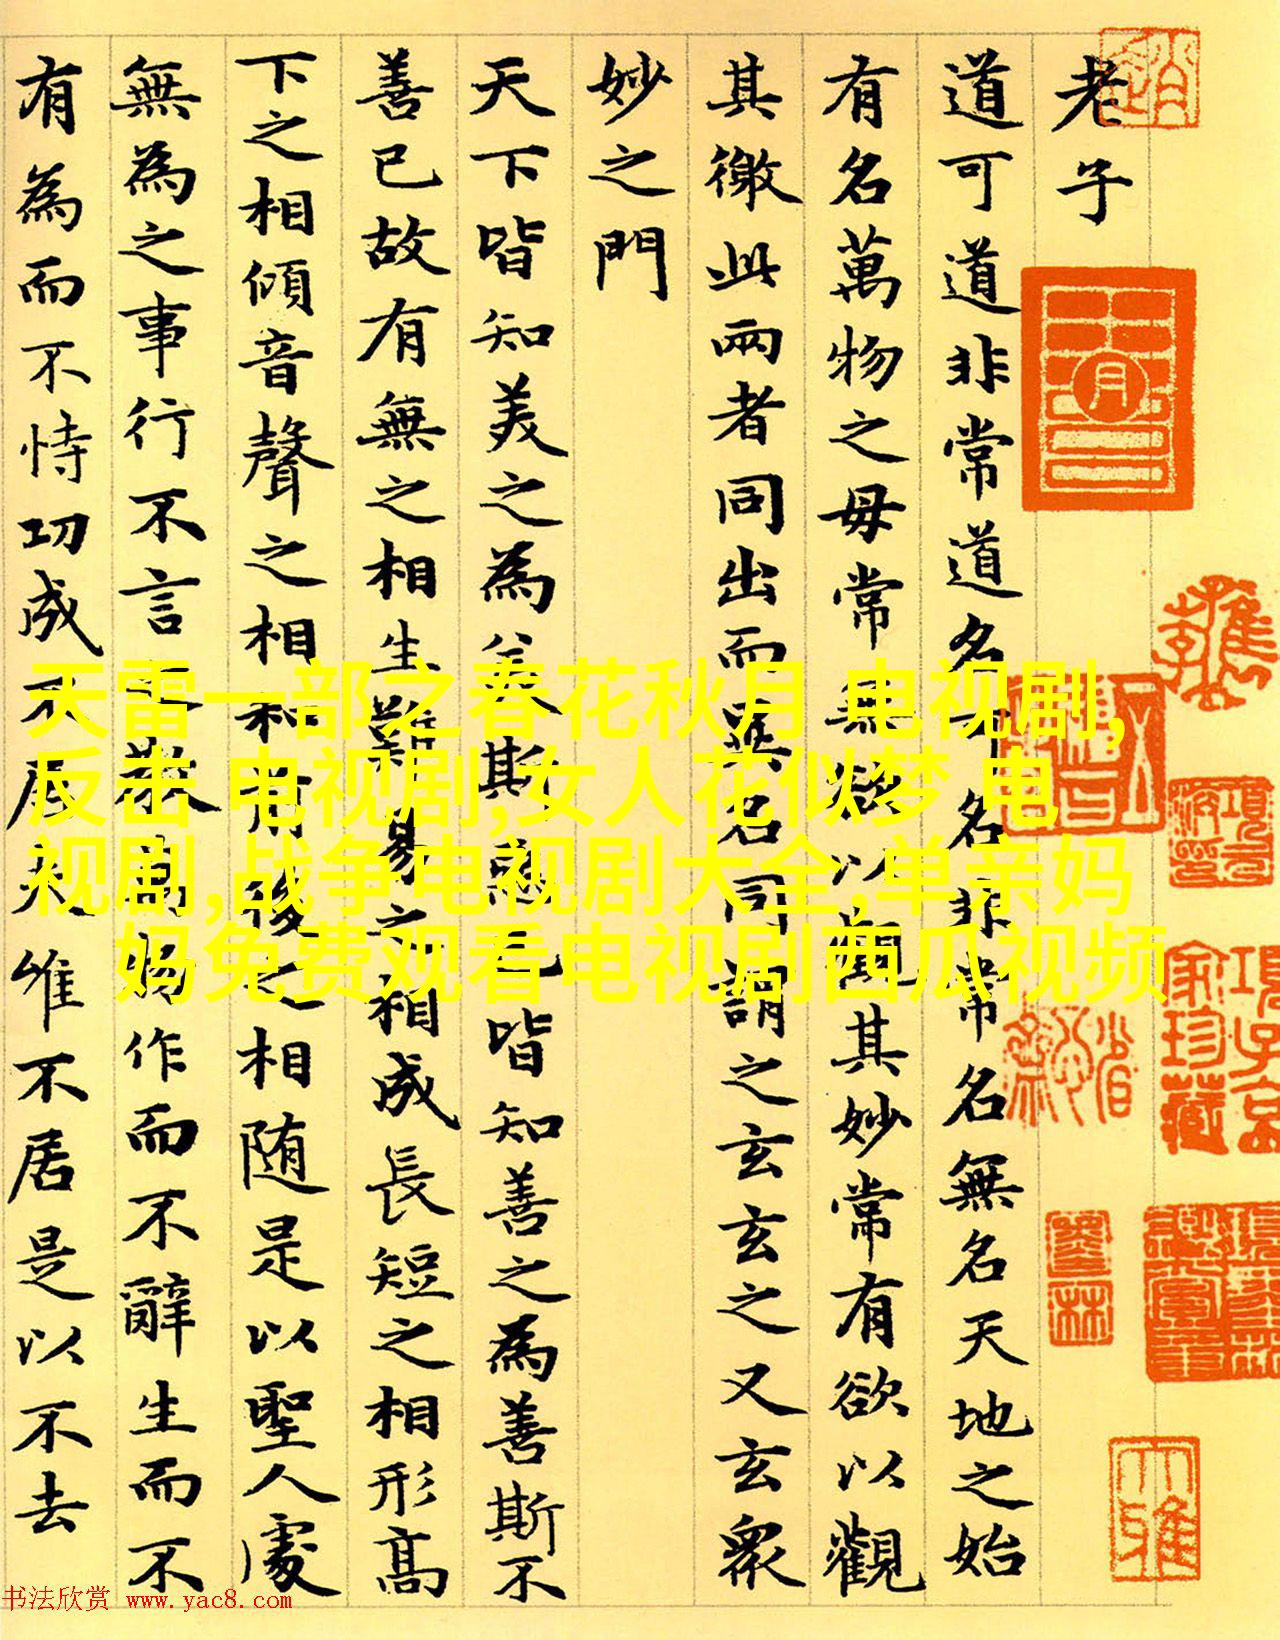 老子
道可道非常道名可名非常名無名天地之始
有名萬物之母常無欲以觀其妙常有欲以觀
其徼此兩者同出而異名同謂之玄玄之又玄衆
妙之門
天下皆知美之為美斯惡已皆知善之為善斯不
善已故有無之相生難易之相成長短之相形高
下之相傾音聲之相和前後之相随是以聖人處
無為之事行不言之教萬物作而不辭生而不
有為而不恃功成不居夫唯不居是以不去
天雷一部之春花秋月 电视剧,
反击 电视剧,女人花似梦 电
视剧,战争电视剧大全,单亲妈
妈免费观看电视剧西瓜视频
項子京
家珍藏
书法欣赏 www.yac8.com